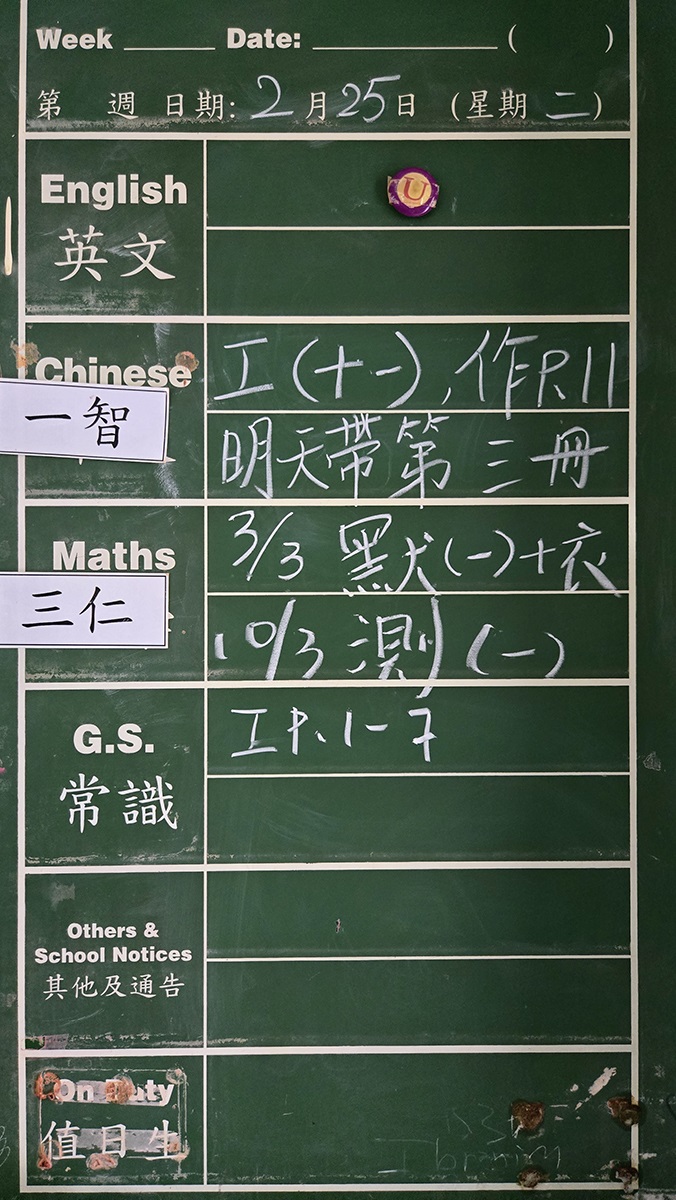 Week ______ Date: ____________ (    )
第 週 日期: 2月25日 (星期 二)
English
U
英文
Chinese
工(十一), 作P.11
一智
明天帶第三冊
Maths
3/3 默(一)+衣
三仁
10/3 測(一)
G.S.
工P.1-7
常識
Others &
School Notices
其他及通告
On Duty
值日生